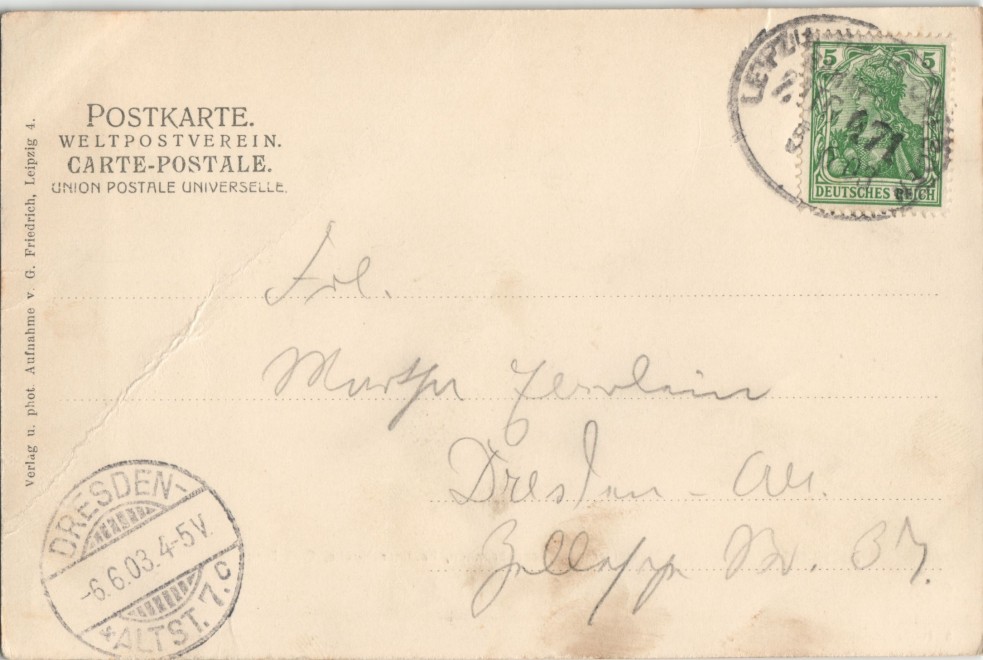 POSTKARTE.
WELTPOSTVEREIN.
CARTE-POSTALE.
UNION POSTALE UNIVERSELLE.
Verlag u. phot. Aufnahme v. G. Friedrich, Leipzig 4.
5 5
DEUTSCHES REICH
LEIPZIG
471
Frl.
Martha
Dresden - Alt.
37.
DRESDEN-
-6.6.03. 4-5V.
*ALTST. 7. c